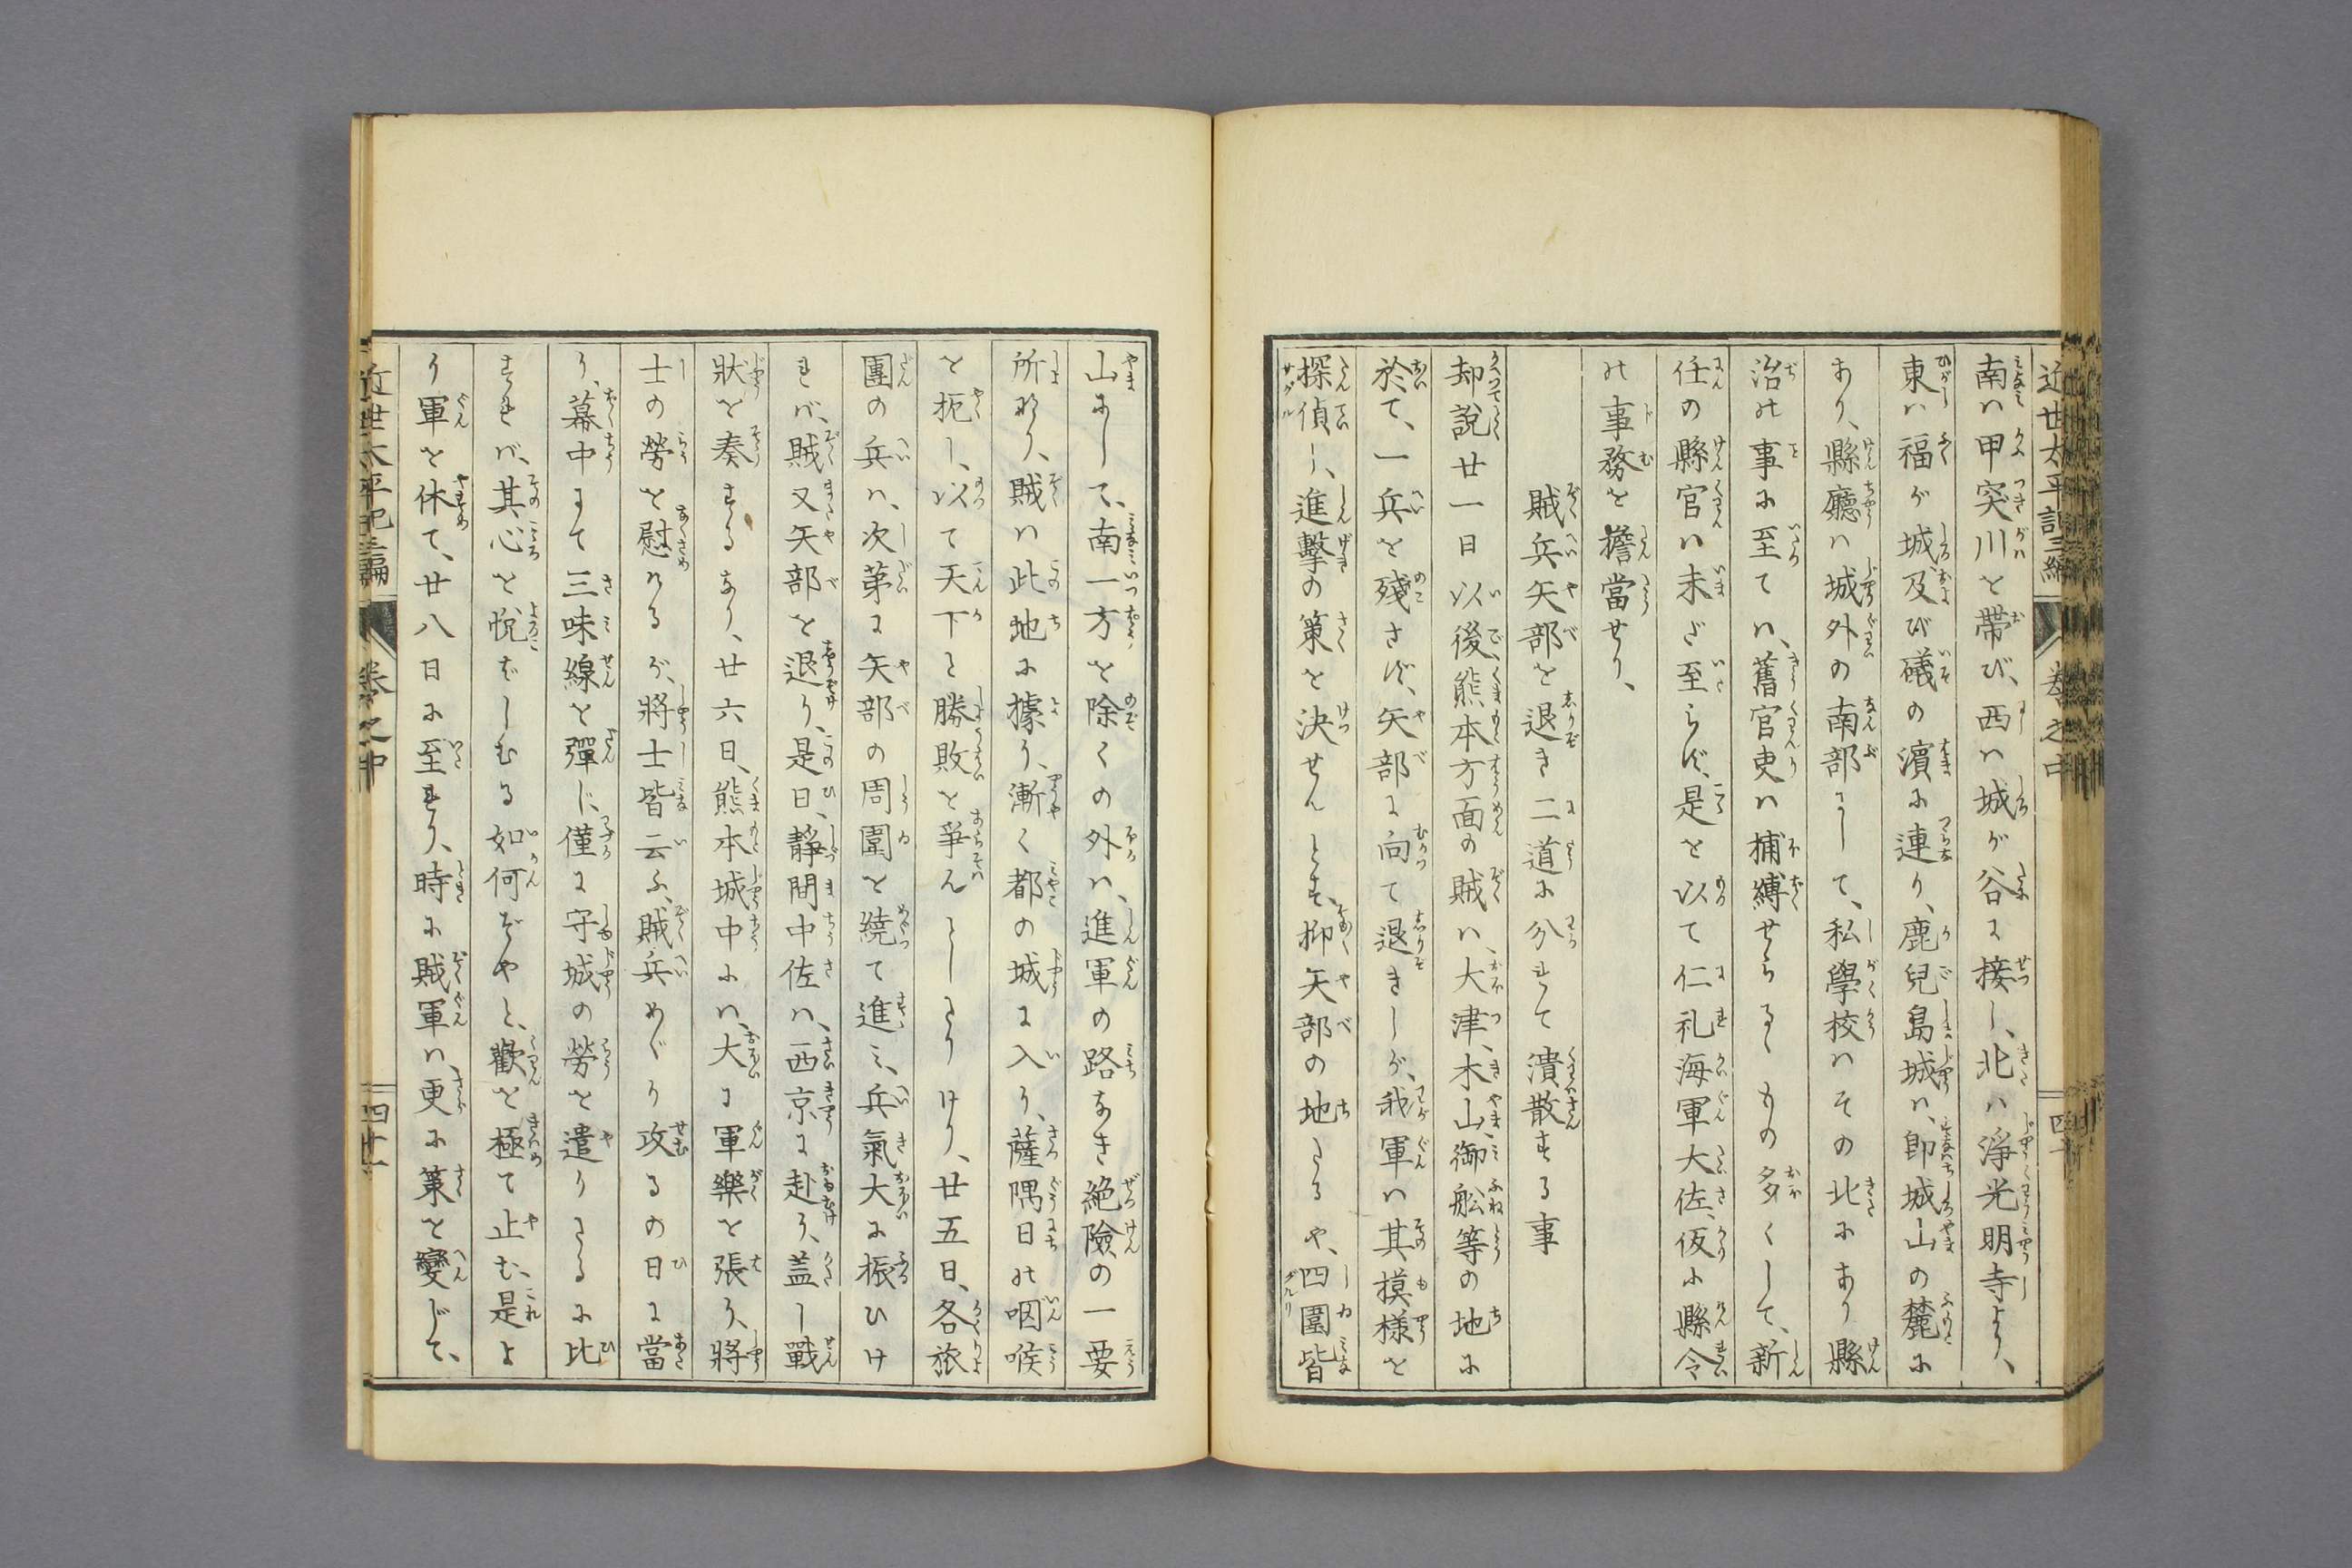 近世太平記三編 卷之中 四十
南ハ甲突川を帶び、西ハ城が谷に接し、北ハ淨光明寺より、
東ハ福が城、及び礒の濱に連り、鹿兒島城ハ、即城山の麓に
あり、縣廳ハ城外の南部にして、私學校ハその北にあり縣
治の事に至てハ、舊官吏ハ捕縛せらるゝもの多くして、新
任の縣官ハ未ざ至らず、是を以て仁礼海軍大佐、仮に縣令
の事務を擔當せり、
賊兵矢部を退き二道に分れて潰散する事
却説廿一日以後、熊本方面の賊ハ、大津、木山、御舩等の地に
於て、一兵を殘さず、矢部に向て退きしが、我軍ハ其摸様を
探偵し、進擊の策を決せんとす、抑矢部の地たるや、四圍皆
山にして、南一方を除くの外ハ、進軍の路なき絶險の一要
所なり、賊ハ此地に據り、漸く都の城に入り、薩隅日の咽喉
を扼し、以て天下と勝敗を爭んとしたりけり、廿五日、各旅
團の兵ハ、次第に矢部の周圍を繞て進ミ、兵氣大に振ひけ
れバ、賊又矢部を退り、是日、靜間中佐ハ、西京に赴り、蓋し戰
狀を奏するなり、廿六日、熊本城中にハ、大に軍樂を張り、將
士の勞を慰けるが、將士皆云ふ、賊兵めぐり攻るの日に當
り、幕中にて三味線を彈じ、僅に守城の勞を遣りたるに比
すれバ、其心を悦ばしむる如何ぞやと、歡を極て止む、是よ
り軍を休て、廿八日に至れり、時に賊軍ハ、更に策を變じて、
近世太平記三編 卷之中 四十一